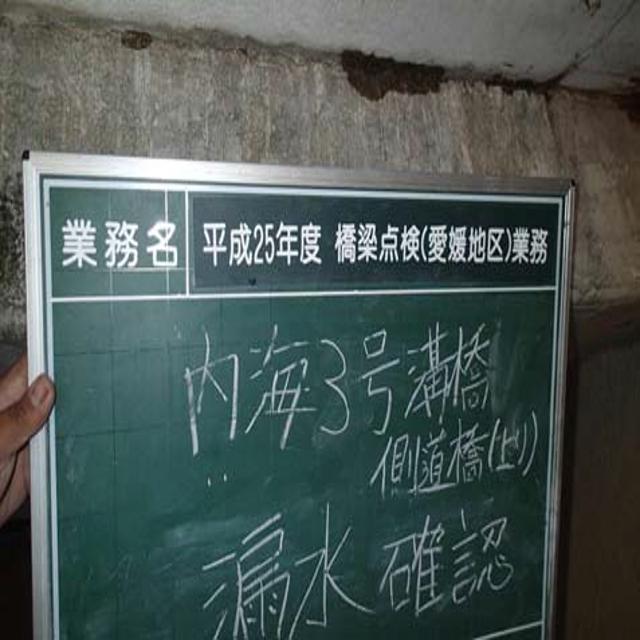 業務名 平成25年度 橋梁点検(愛媛地区)業務
内海3号溝橋
側道橋(上り)
漏水確認